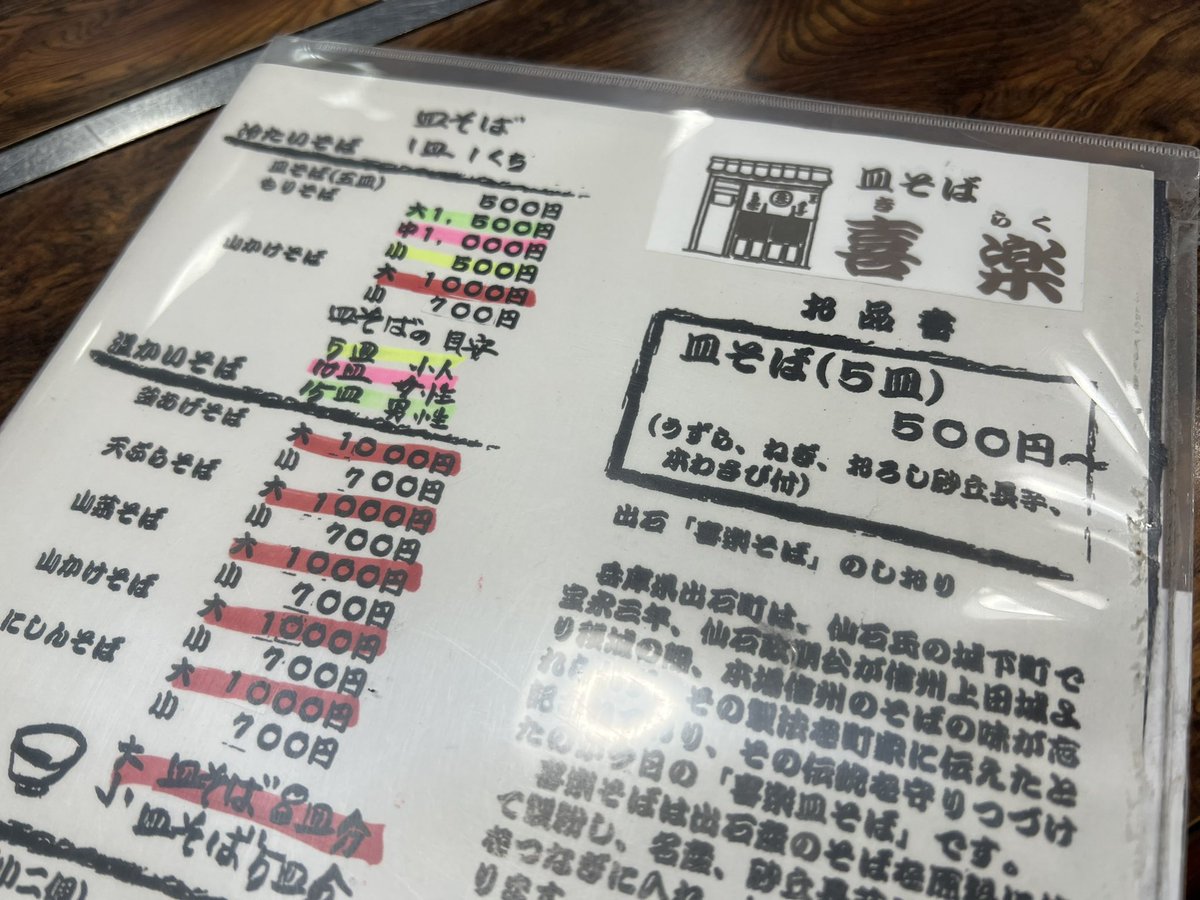 皿そば
1皿、1くち
冷たいそば
皿そば(五皿) 500円
もりそば 大1,500円
中1,000円
小 500円
山かけそば 大 1000円
小 700円
皿そばの目安
5皿 小人
10皿 女性
15皿 男性
温かいそば
釜あげそば 大 1000円
小 700円
天ぷらそば 大 1000円
小 700円
山菜そば 大 1000円
小 700円
山かけそば 大 1000円
小 700円
にしんそば 大 1000円
小 700円
大 皿そば8皿分
小 皿そば5皿分
皿そば
き らく
喜楽
お品書
皿そば(5皿)
500円
(うずら、ねぎ、おろし砂丘長芋、
本わさび付)
出石「喜楽そば」のしおり
兵庫県出石町は、仙石氏の城下町で
宝永三年、仙石政明公が信州上田城よ
り移城の際、本場信州のそばの味が忘
れ その製法を町家に伝えたと
り、その伝統を守りつづけ
たのが今日の「喜楽皿そば」です。
喜楽そばは出石産のそばを
て製粉し、名産、砂丘長芋
をつなぎに入れ